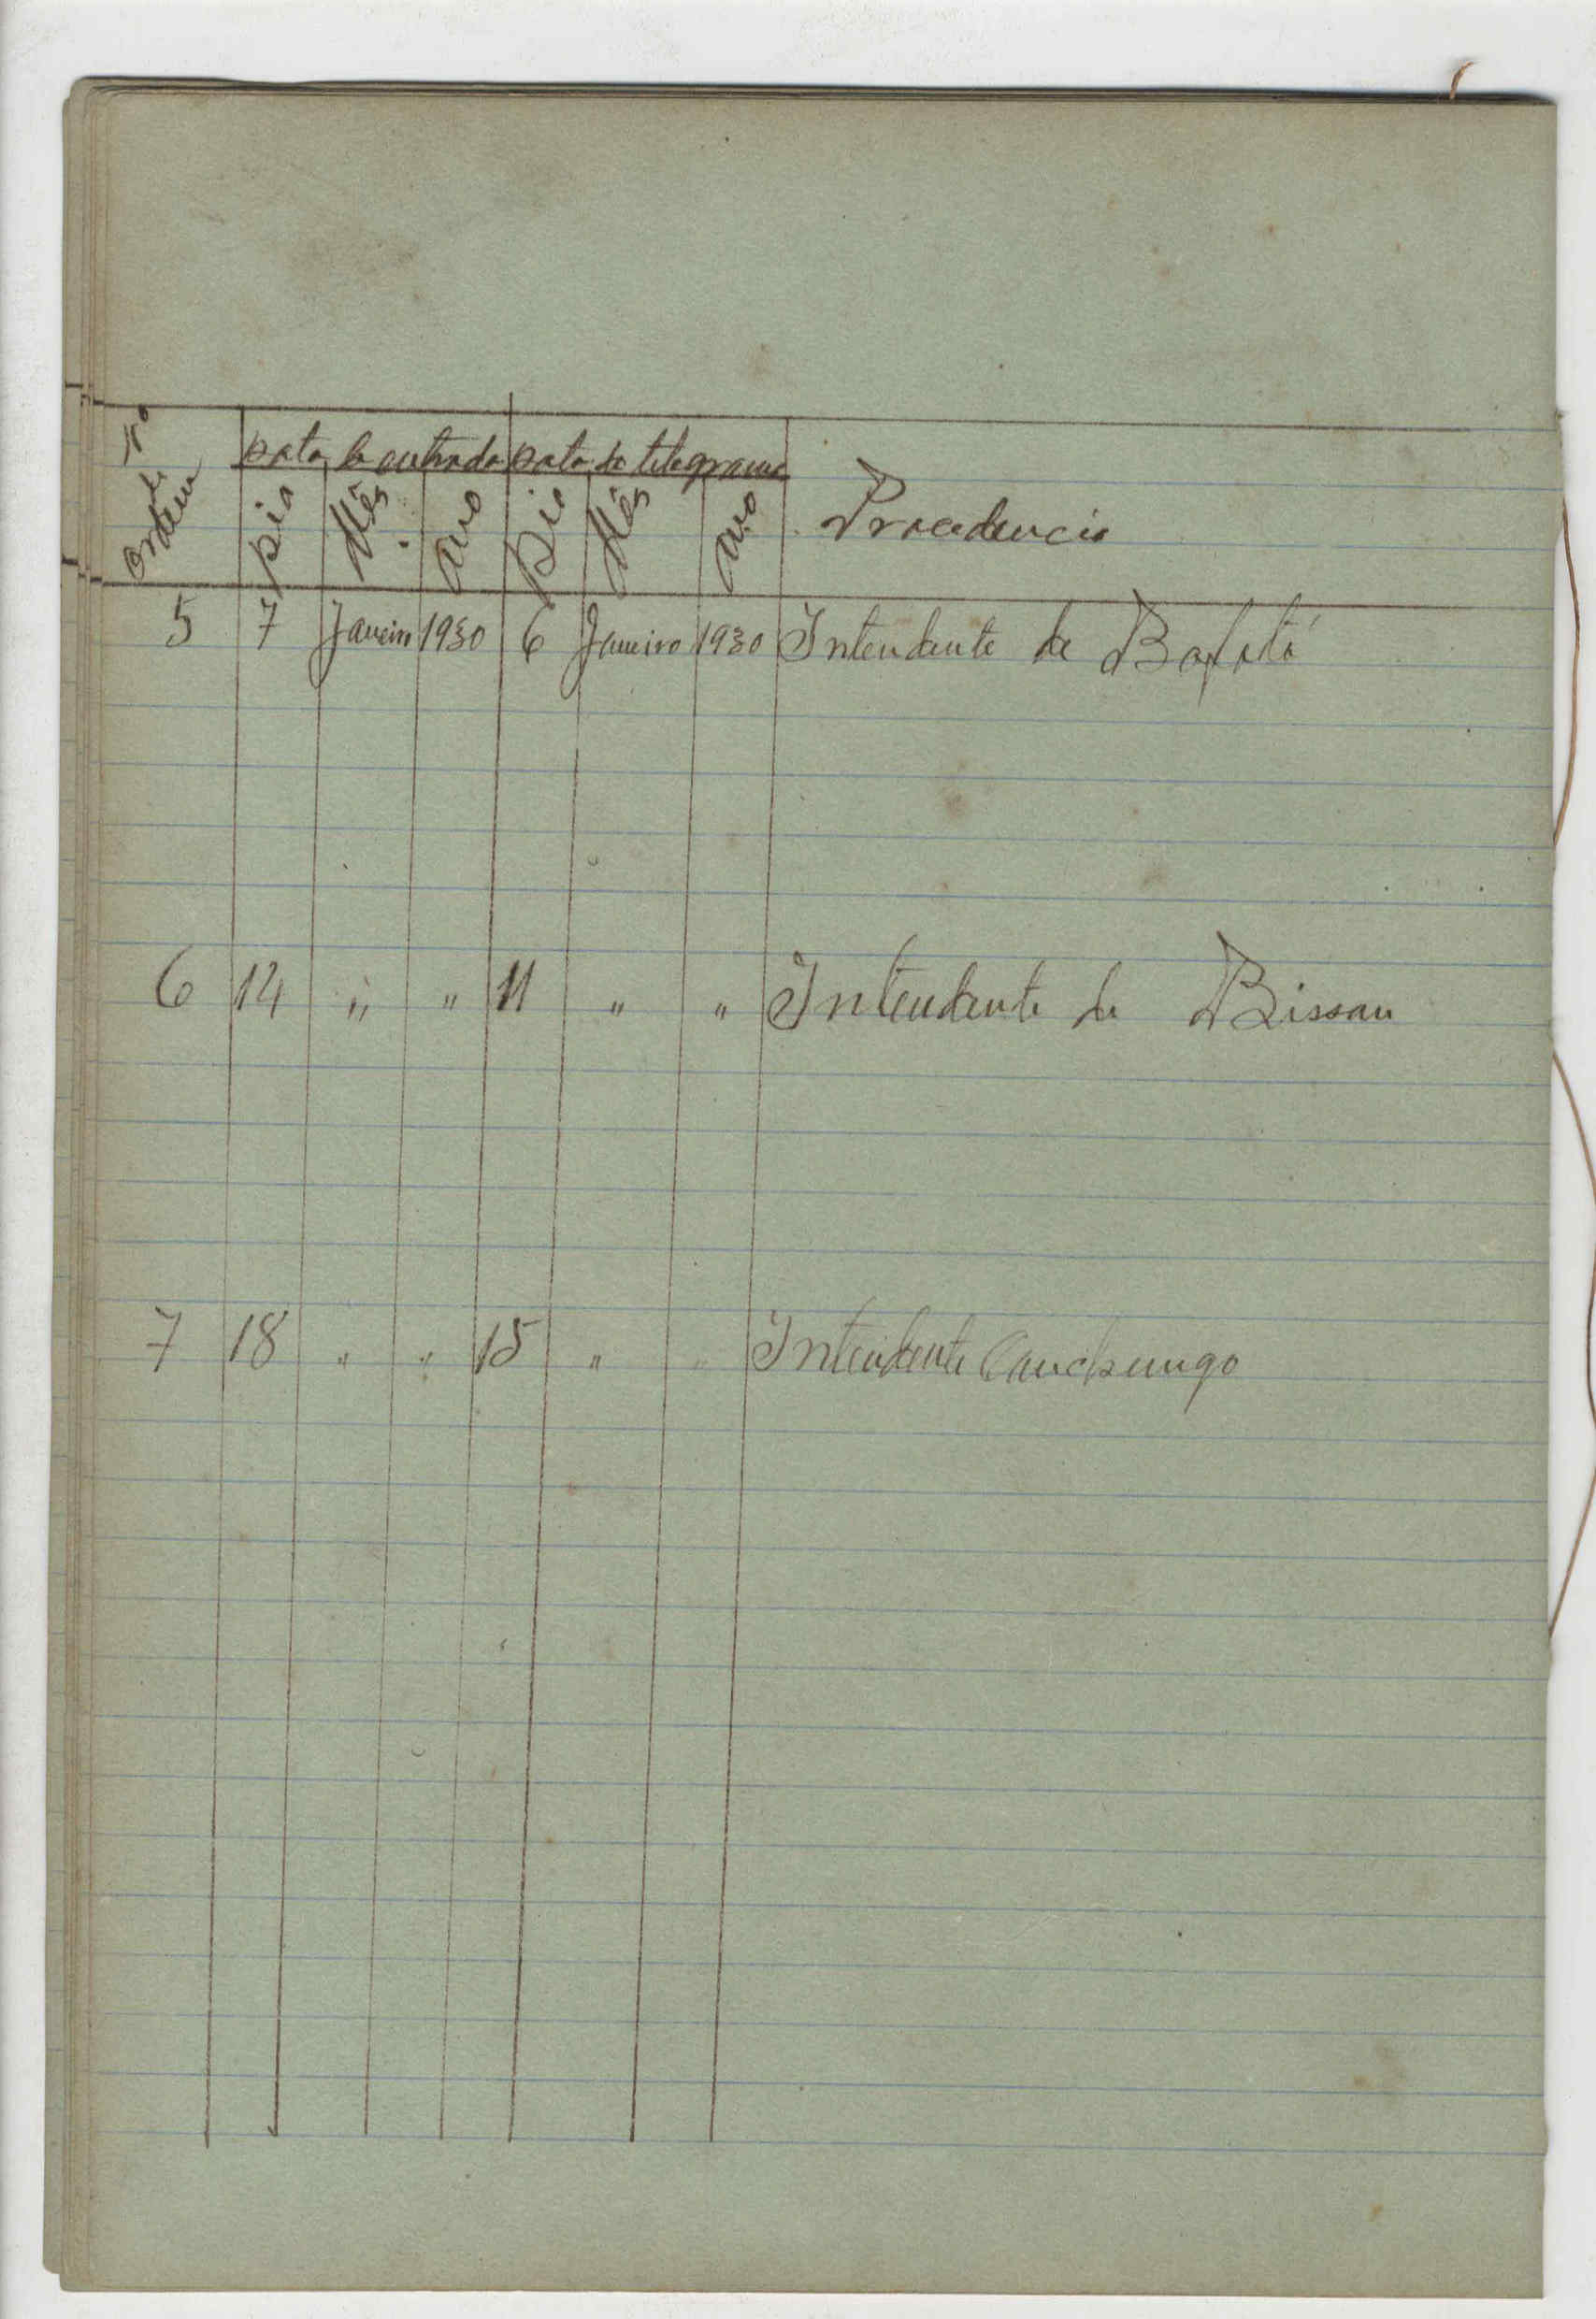 Nº de Ordem
Data de entrada Data do telegrama
Dia Mês Ano Dia Mês Ano Procedencia
5 7 Janeiro 1930 6 Janeiro 1930 Intendente de Bafatá
6 14 " " 11 " " Intendente de Bissau
7 18 " " 15 " " Intendente Canchungo